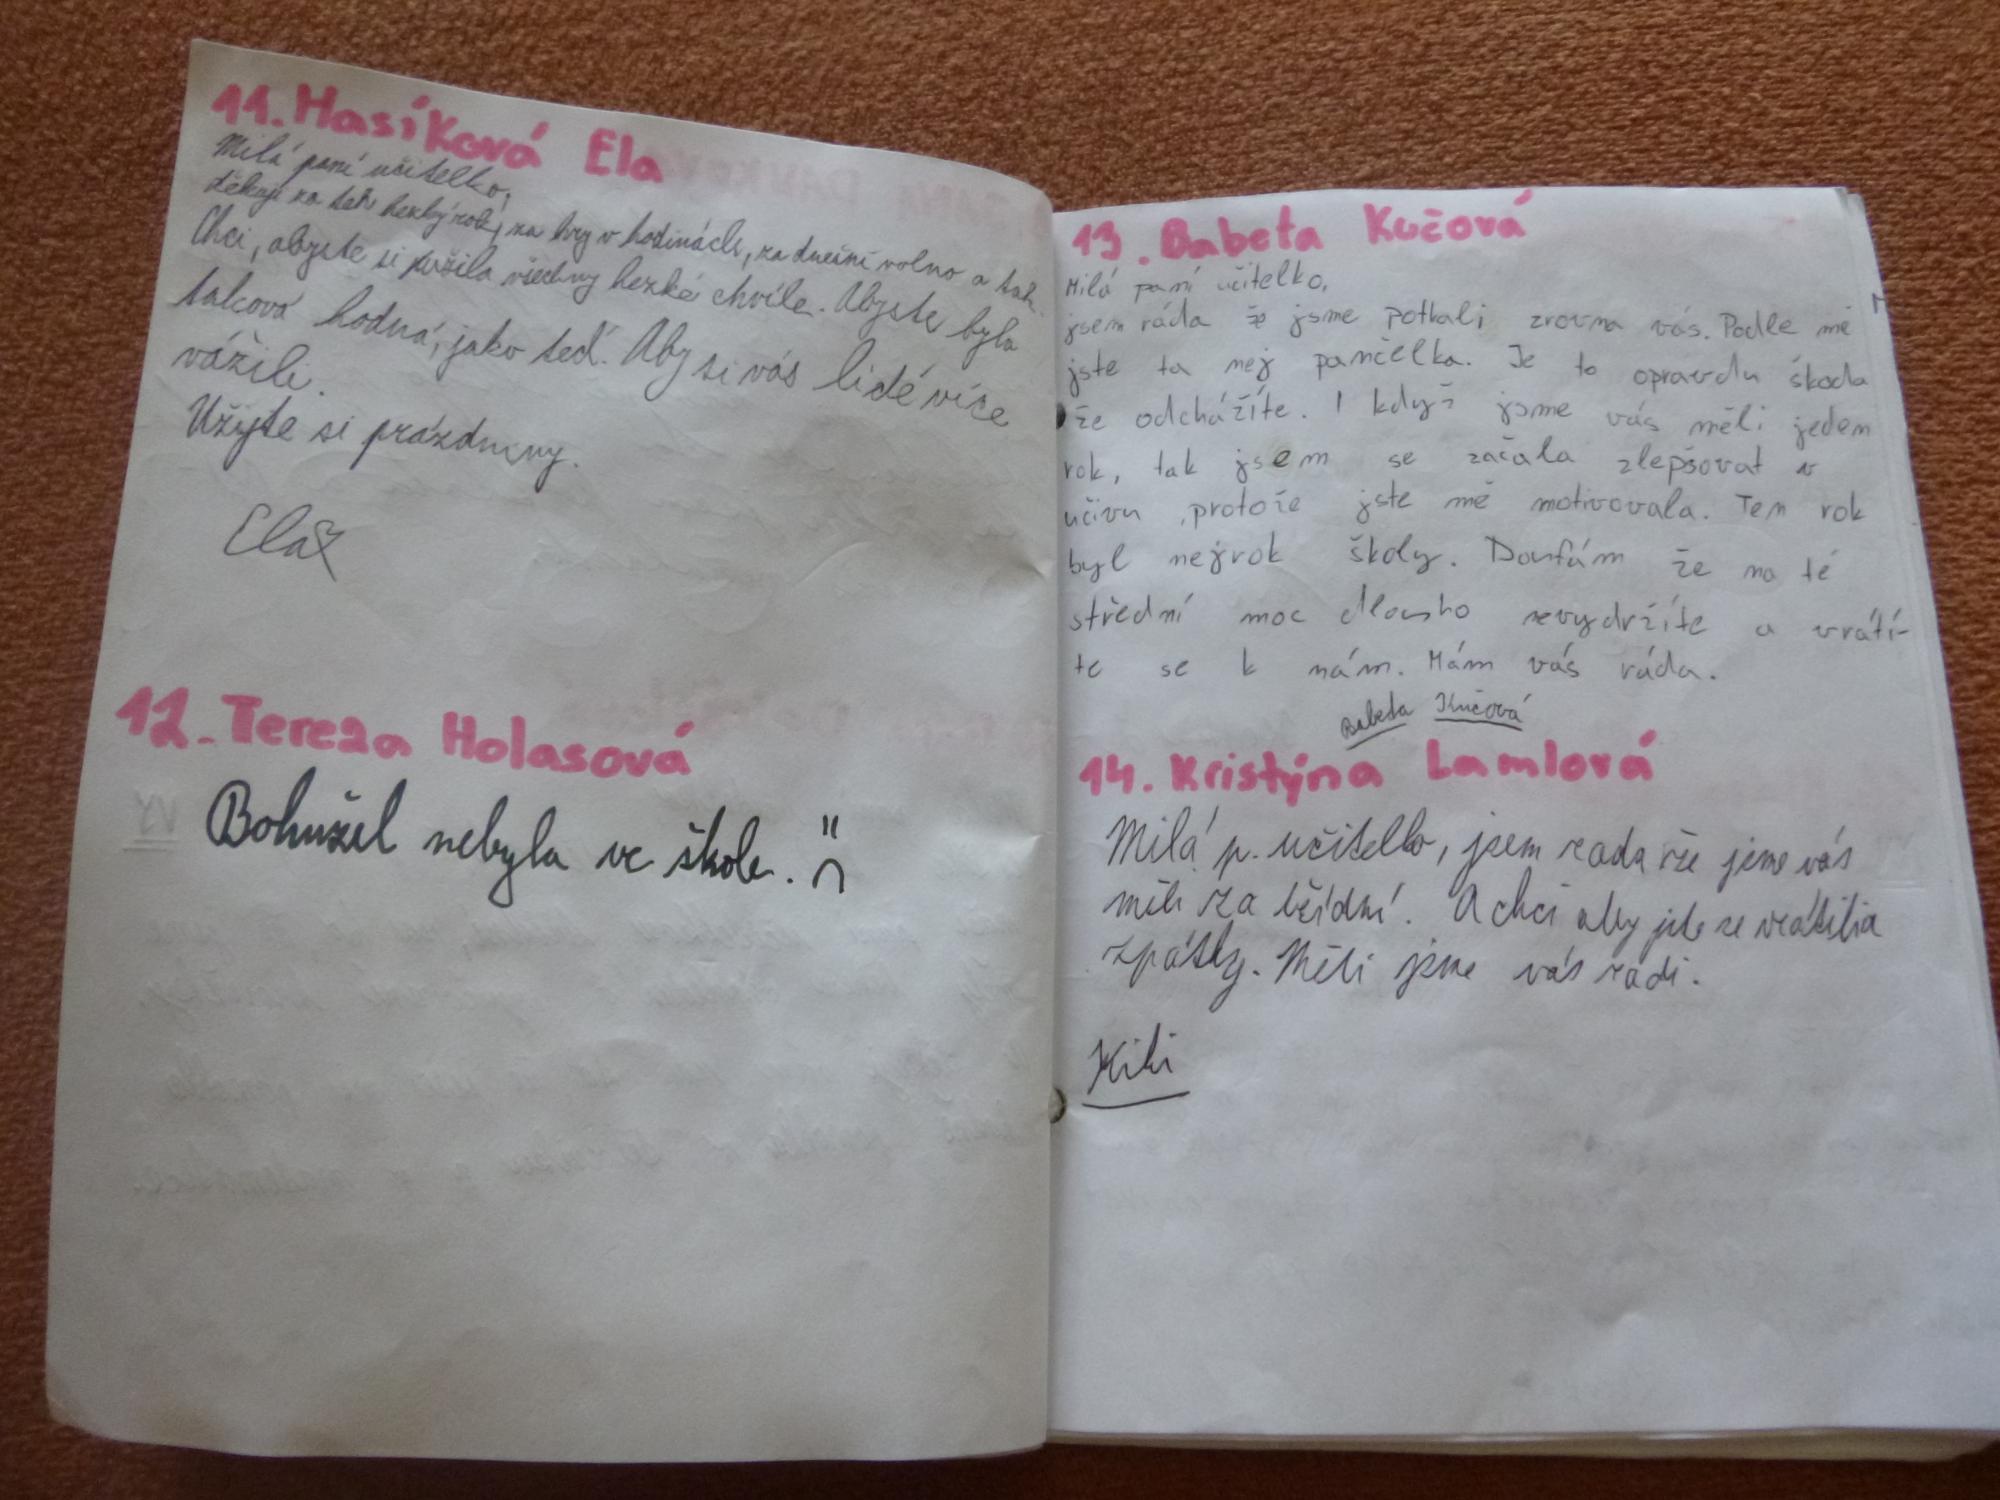 11. Hasíková Ela
Milá paní učitelko,
děkuji za teh hezký rok, za hry v hodinách, za dnešní volno a tak.
Chci, abyste si užila všechny hezké chvíle. Abyste byla
taková hodná, jako teď. Aby si vás lidé více
vážili.
Užijte si prázdniny.
Ela
12. Tereza Holasová
Bohužel nebyla ve škole. :(
13. Babeta Kučová
Milá paní učitelko,
jsem ráda že jsme potkali zrovna vás. Podle mě
jste ta nej pančelka. Je to opravdu škoda
že odcházíte. I když jsme vás měli jeden
rok, tak jsem se začala zlepšovat v
učivu, protože jste mě motivovala. Ten rok
byl nejrok školy. Doufám že na té
střední moc dlouho nevydržíte a vrátí-
te se k nám. Mám vás ráda.
Babeta Kučová
14. Kristýna Lamlová
Milá p. učitelko, jsem rada že jsme vás
měli za třídní. A chci aby jste se vrátila
zpátky. Měli jsme vás rádi.
Kiki